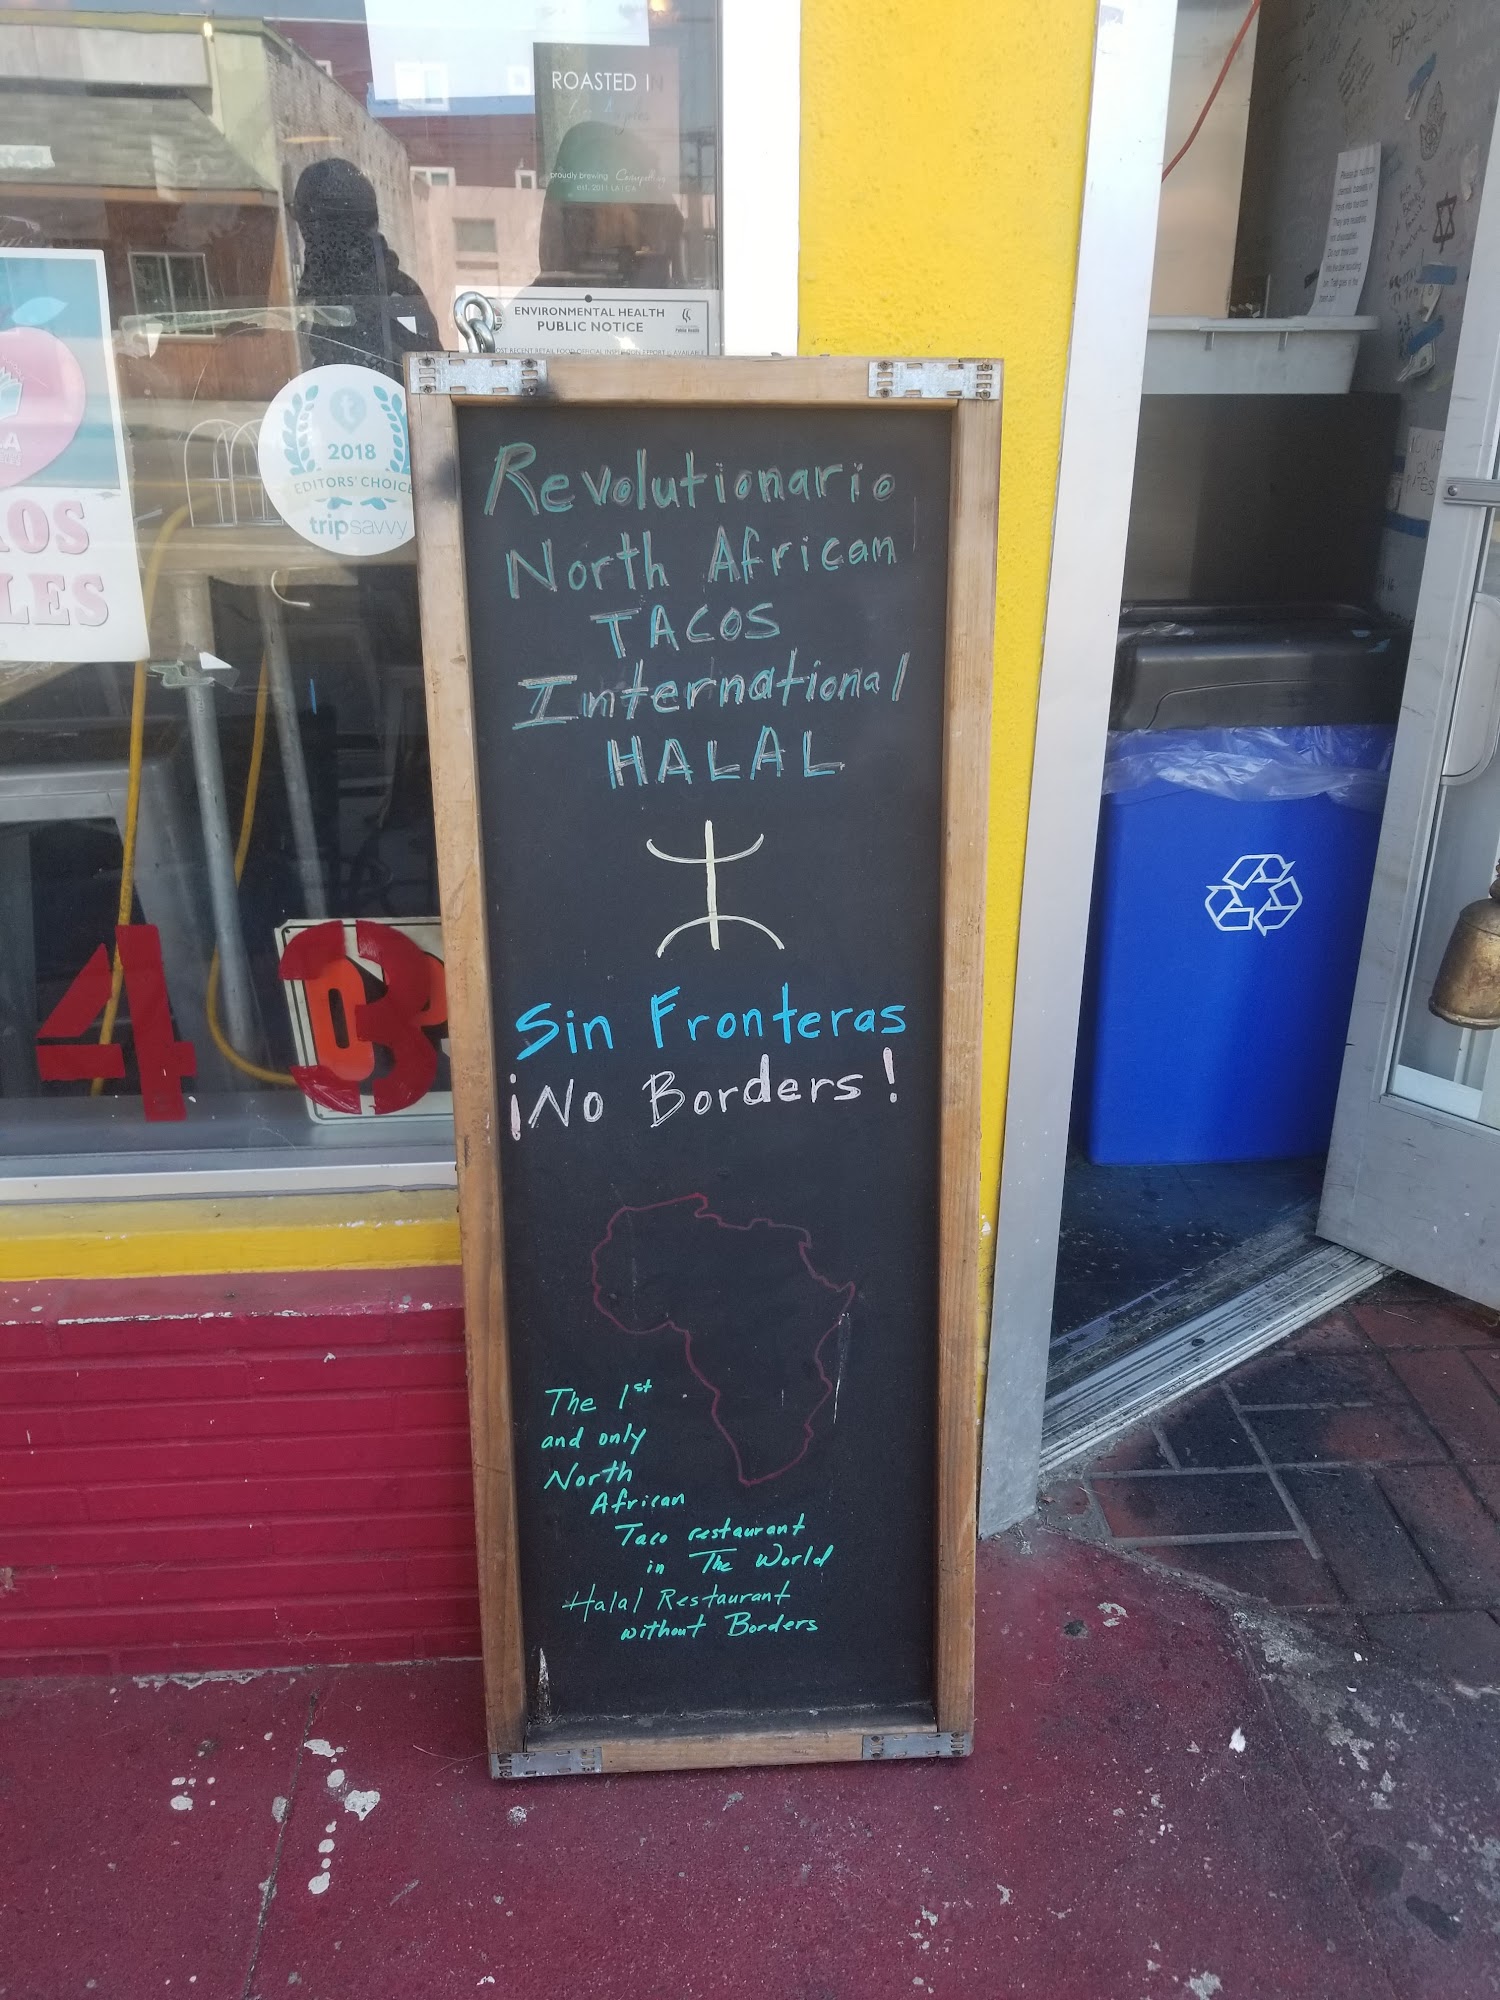 ROASTED I
Los Angeles
proudly brewing Company
est. 2011 LA | CA
ENVIRONMENTAL HEALTH
PUBLIC NOTICE
2018
EDITORS' CHOICE
tripsavvy
LES
4 3
Revolutionario
North African
TACOS
International
HALAL
Sin Fronteras
¡No Borders!
The 1st
and only
North
African
Taco restaurant
in The World
Halal Restaurant
without Borders